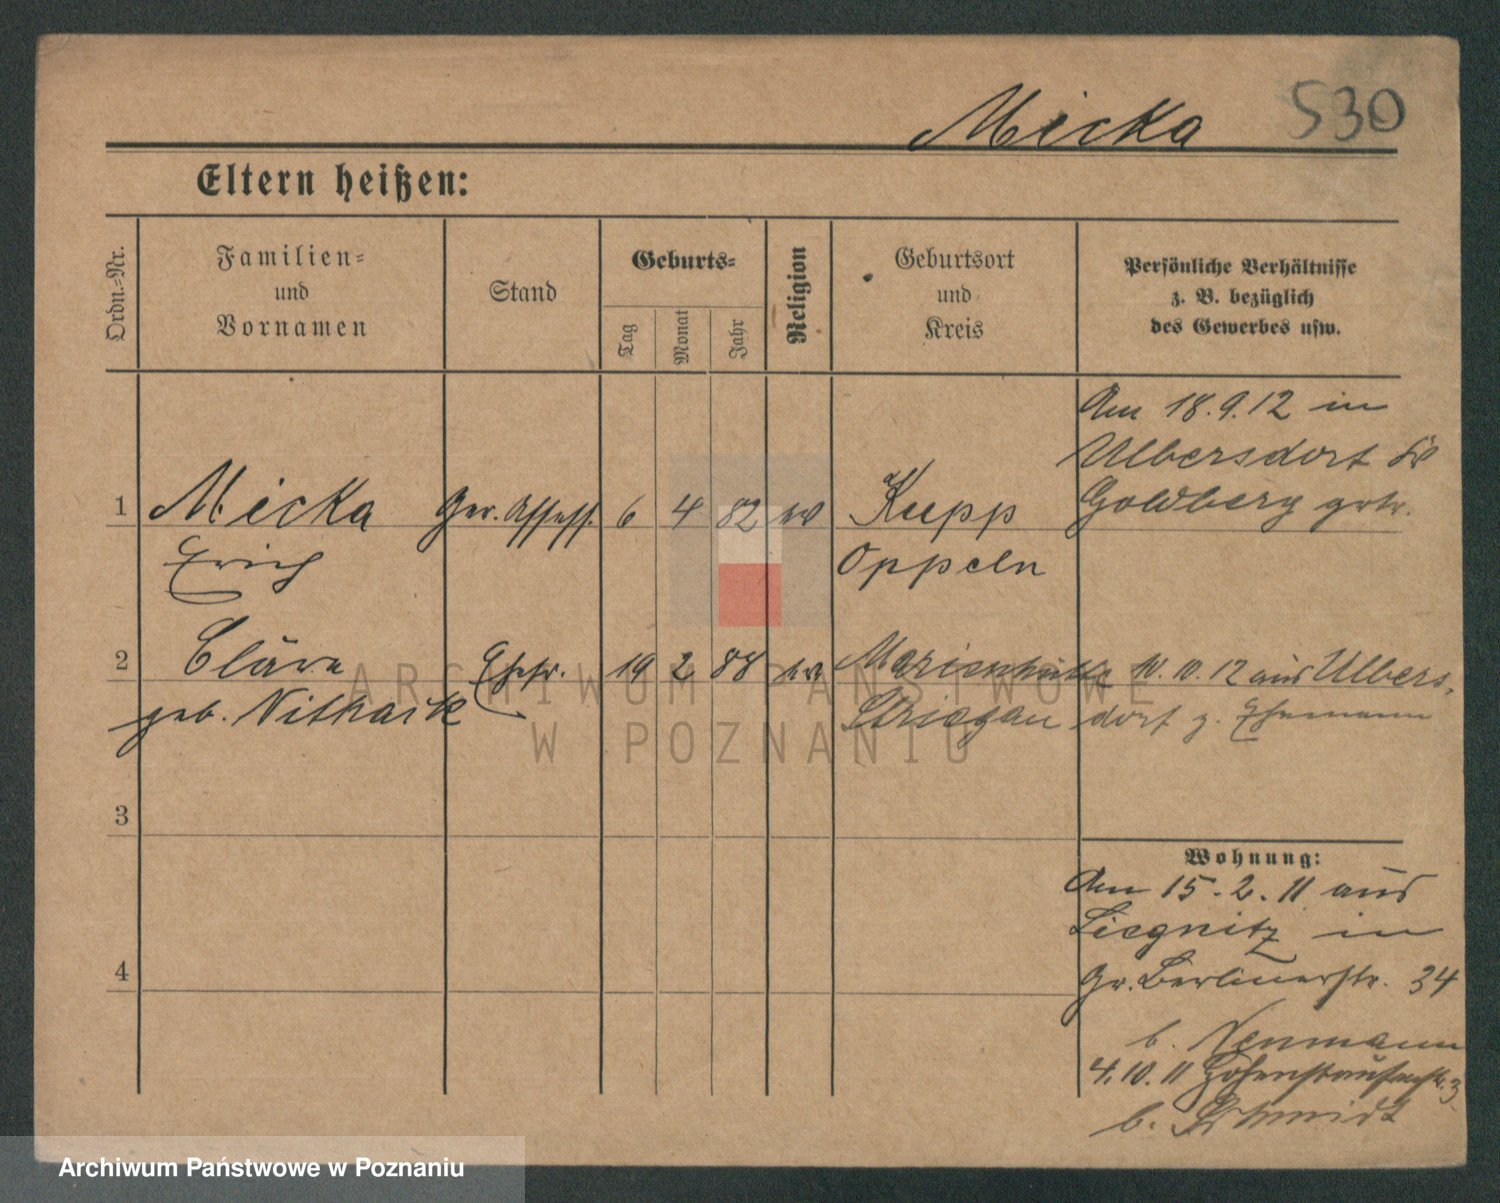 Micka 530
Eltern heißen:
Ordn.-Nr.
Familien-
und
Vornamen
Stand
Geburts-
Tag
Monat
Jahr
Religion
Geburtsort
und
Kreis
Persönliche Verhältnisse
z. B. bezüglich
des Gewerbes usw.
Am 18.9.12 in
Ulbersdorf
Goldberg getr.
1 Micka Ger. Assess. 6 4 82 ev Kupp
Erich Oppeln
2 Cläre Ehefr. 19 2 88 ev Marienhütte 10.10.12 aus Ulbers-
geb. Nithack Striegau dorf z. Ehemann
3
4
Wohnung:
Am 15.2.11 aus
Liegnitz in
Gr. Berlinerstr. 34
b. Neumann
4.10.11 Hohenstaufenstr. 3
b. Schmidt
ARCHIWUM PAŃSTWOWE
W POZNANIU
Archiwum Państwowe w Poznaniu